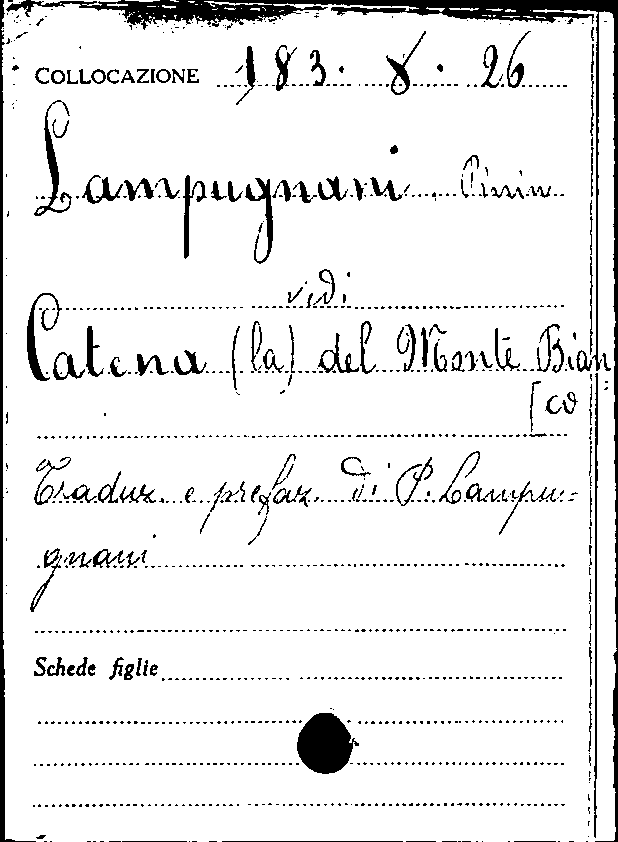 COLLOCAZIONE 183. 8. 26
Lampugnani, Pinin
vedi
Catena (la) del Monte Bian
[co
Traduz. e prefaz. di P. Lampu-
gnani
Schede figlie